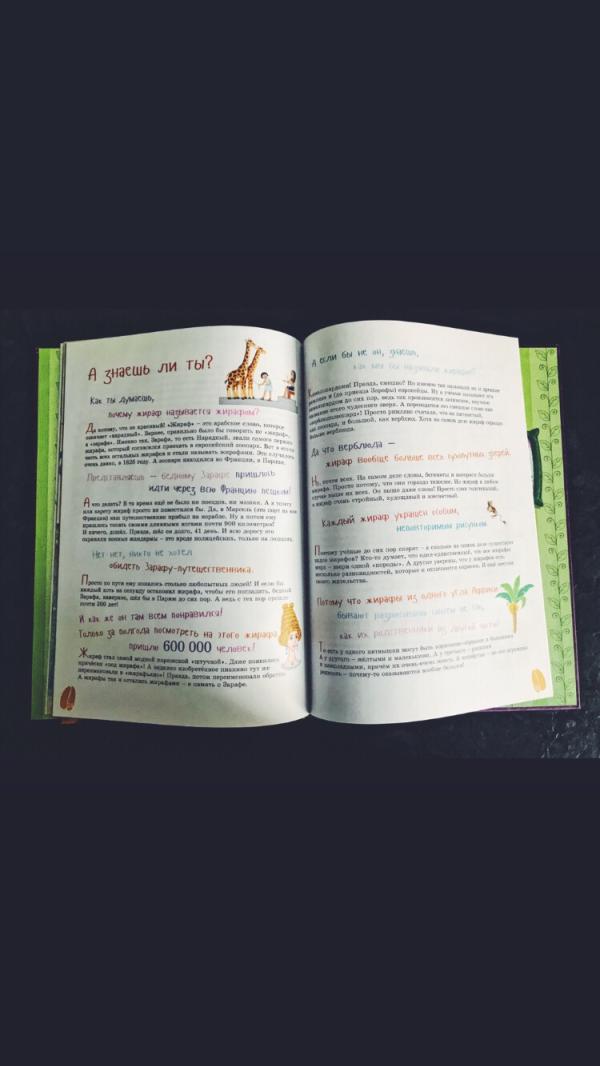 А знаешь ли ты?
Как ты думаешь,
почему жираф называется жирафом?
Да потому, что он красивый! «Жираф» — это арабское слово, которое
означает «нарядный». Вернее, правильно было бы говорить не «жираф»,
а «зарафа». Именно так, Зарафа, то есть Нарядный, звали самого первого
жирафа, который согласился приехать в европейский зоопарк. Вот в его
честь всех остальных жирафов и стали называть жирафами. Это случилось
очень давно, в 1826 году. А зоопарк находился во Франции, в Париже.
Представляешь — бедному Зарафе пришлось
идти через всю Францию пешком!
А что делать? В то время ещё не было ни поездов, ни машин. А в телегу
или карету жираф просто не поместился бы. Да, в Марсель (это порт на юге
Франции) наш путешественник прибыл на корабле. Ну а потом ему
пришлось топать своими длинными ногами почти 900 километров!
И ничего, дошёл. Правда, шёл он долго, 41 день. И всю дорогу его
охраняли конные жандармы — это вроде полицейских, только на лошадях.
Нет-нет, никто не хотел
обидеть Зарафу-путешественника.
Просто по пути ему попалось столько любопытных людей! И если бы
каждый хоть на секунду остановил жирафа, чтобы его погладить, бедный
Зарафа, наверное, шёл бы в Париж до сих пор. А ведь с тех пор прошло
почти 200 лет!
И как же он там всем понравился!
Только за полгода посмотреть на этого жирафа
пришло 600 000 человек!
Жираф стал самой модной парижской «штучкой». Даже появилась
причёска «под жирафа»! А недавно изобретённое пианино тут же
переименовали в «жирафьяно»! Правда, потом переименовали обратно.
А жирафы так и остались жирафами — в память о Зарафе.
А если бы не он, знаешь,
как мы бы называли жирафа?
Правда, смешно? Но именно так называли их
до сих пор, ведь так произносится латинское, научное
Просто римляне считали, что он пятнистый,
как леопард, и большой, как верблюд. Хотя на самом деле жираф гораздо
больше верблюда.
Да что верблюда —
жираф вообще больше всех сухопутных зверей.
Ну, почти всех. На самом деле слоны, бегемоты и носороги больше
жирафа. Просто потому, что они гораздо тяжелее. Но жираф зато
выше их всех. Он выше даже слона! Просто слон толстенький,
а жираф очень стройный, худощавый и изящный.
Каждый жираф украшен особым,
неповторимым рисунком.
Поэтому учёные до сих пор спорят — а сколько на самом деле существует
видов жирафов? Кто-то думает, что один-единственный, что все жирафы
мира — звери одной «породы». А другие уверены, что у жирафов есть
несколько разновидностей, которые и отличаются окраской. И ещё местом
своего жительства.
Потому что жирафы из одного угла Африки
бывают разрисованы совсем не так,
как их родственники из другой части!
То есть у одного пятнышки могут быть
а у другого — жёлтыми и маленькими. А у третьего —